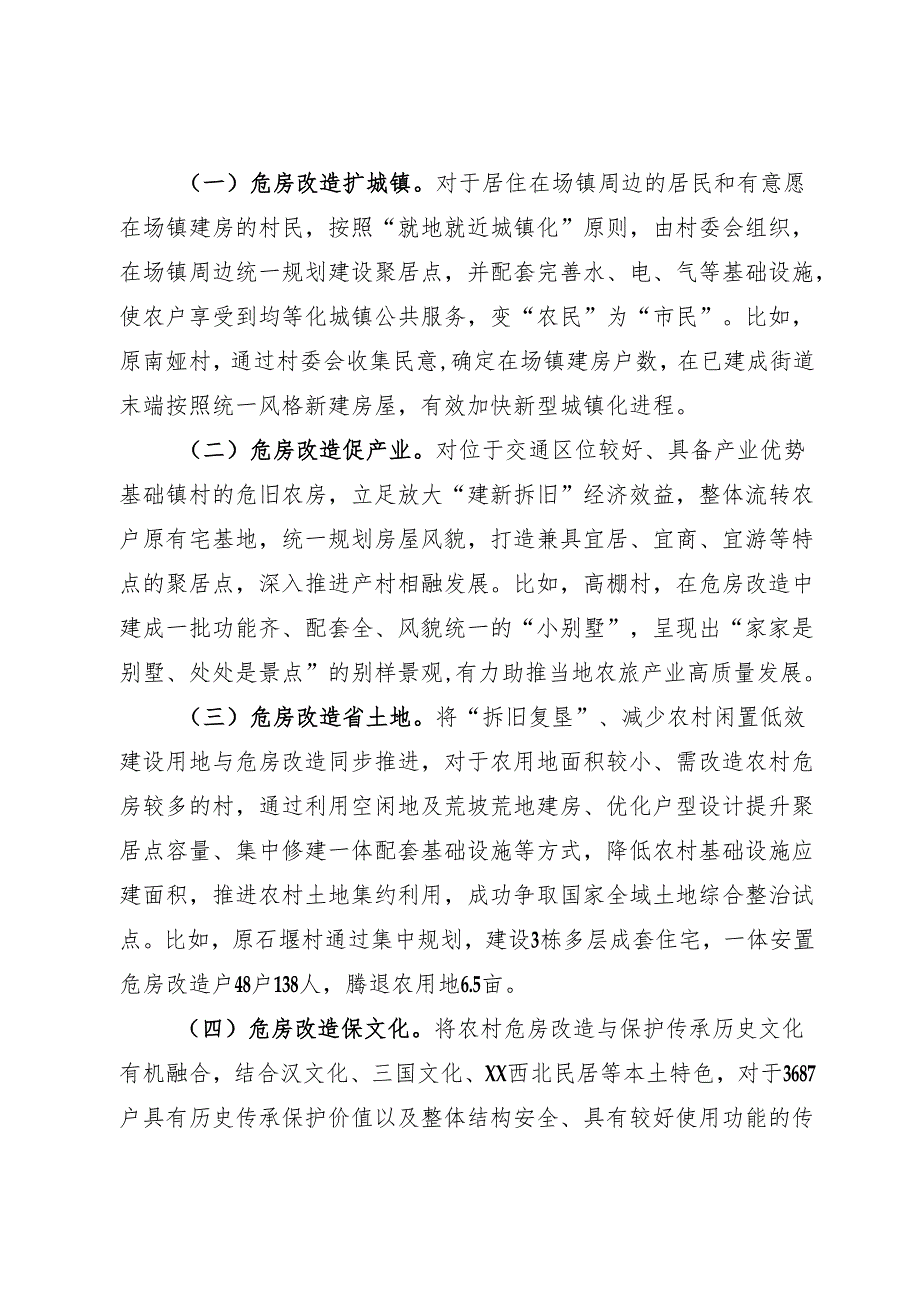 （一）危房改造扩城镇。对于居住在场镇周边的居民和有意愿
在场镇建房的村民，按照“就地就近城镇化”原则，由村委会组织，
在场镇周边统一规划建设聚居点，并配套完善水、电、气等基础设施，
使农户享受到均等化城镇公共服务，变“农民”为“市民”。比如，
原南娅村，通过村委会收集民意,确定在场镇建房户数，在已建成街道
末端按照统一风格新建房屋，有效加快新型城镇化进程。
（二）危房改造促产业。对位于交通区位较好、具备产业优势
基础镇村的危旧农房，立足放大“建新拆旧”经济效益，整体流转农
户原有宅基地，统一规划房屋风貌，打造兼具宜居、宜商、宜游等特
点的聚居点，深入推进产村相融发展。比如，高棚村，在危房改造中
建成一批功能齐、配套全、风貌统一的“小别墅”，呈现出“家家是
别墅、处处是景点”的别样景观,有力助推当地农旅产业高质量发展。
（三）危房改造省土地。将“拆旧复垦”、减少农村闲置低效
建设用地与危房改造同步推进，对于农用地面积较小、需改造农村危
房较多的村，通过利用空闲地及荒坡荒地建房、优化户型设计提升聚
居点容量、集中修建一体配套基础设施等方式，降低农村基础设施应
建面积，推进农村土地集约利用，成功争取国家全域土地综合整治试
点。比如，原石堰村通过集中规划，建设3栋多层成套住宅，一体安置
危房改造户48户138人，腾退农用地6.5亩。
（四）危房改造保文化。将农村危房改造与保护传承历史文化
有机融合，结合汉文化、三国文化、XX西北民居等本土特色，对于3687
户具有历史传承保护价值以及整体结构安全、具有较好使用功能的传